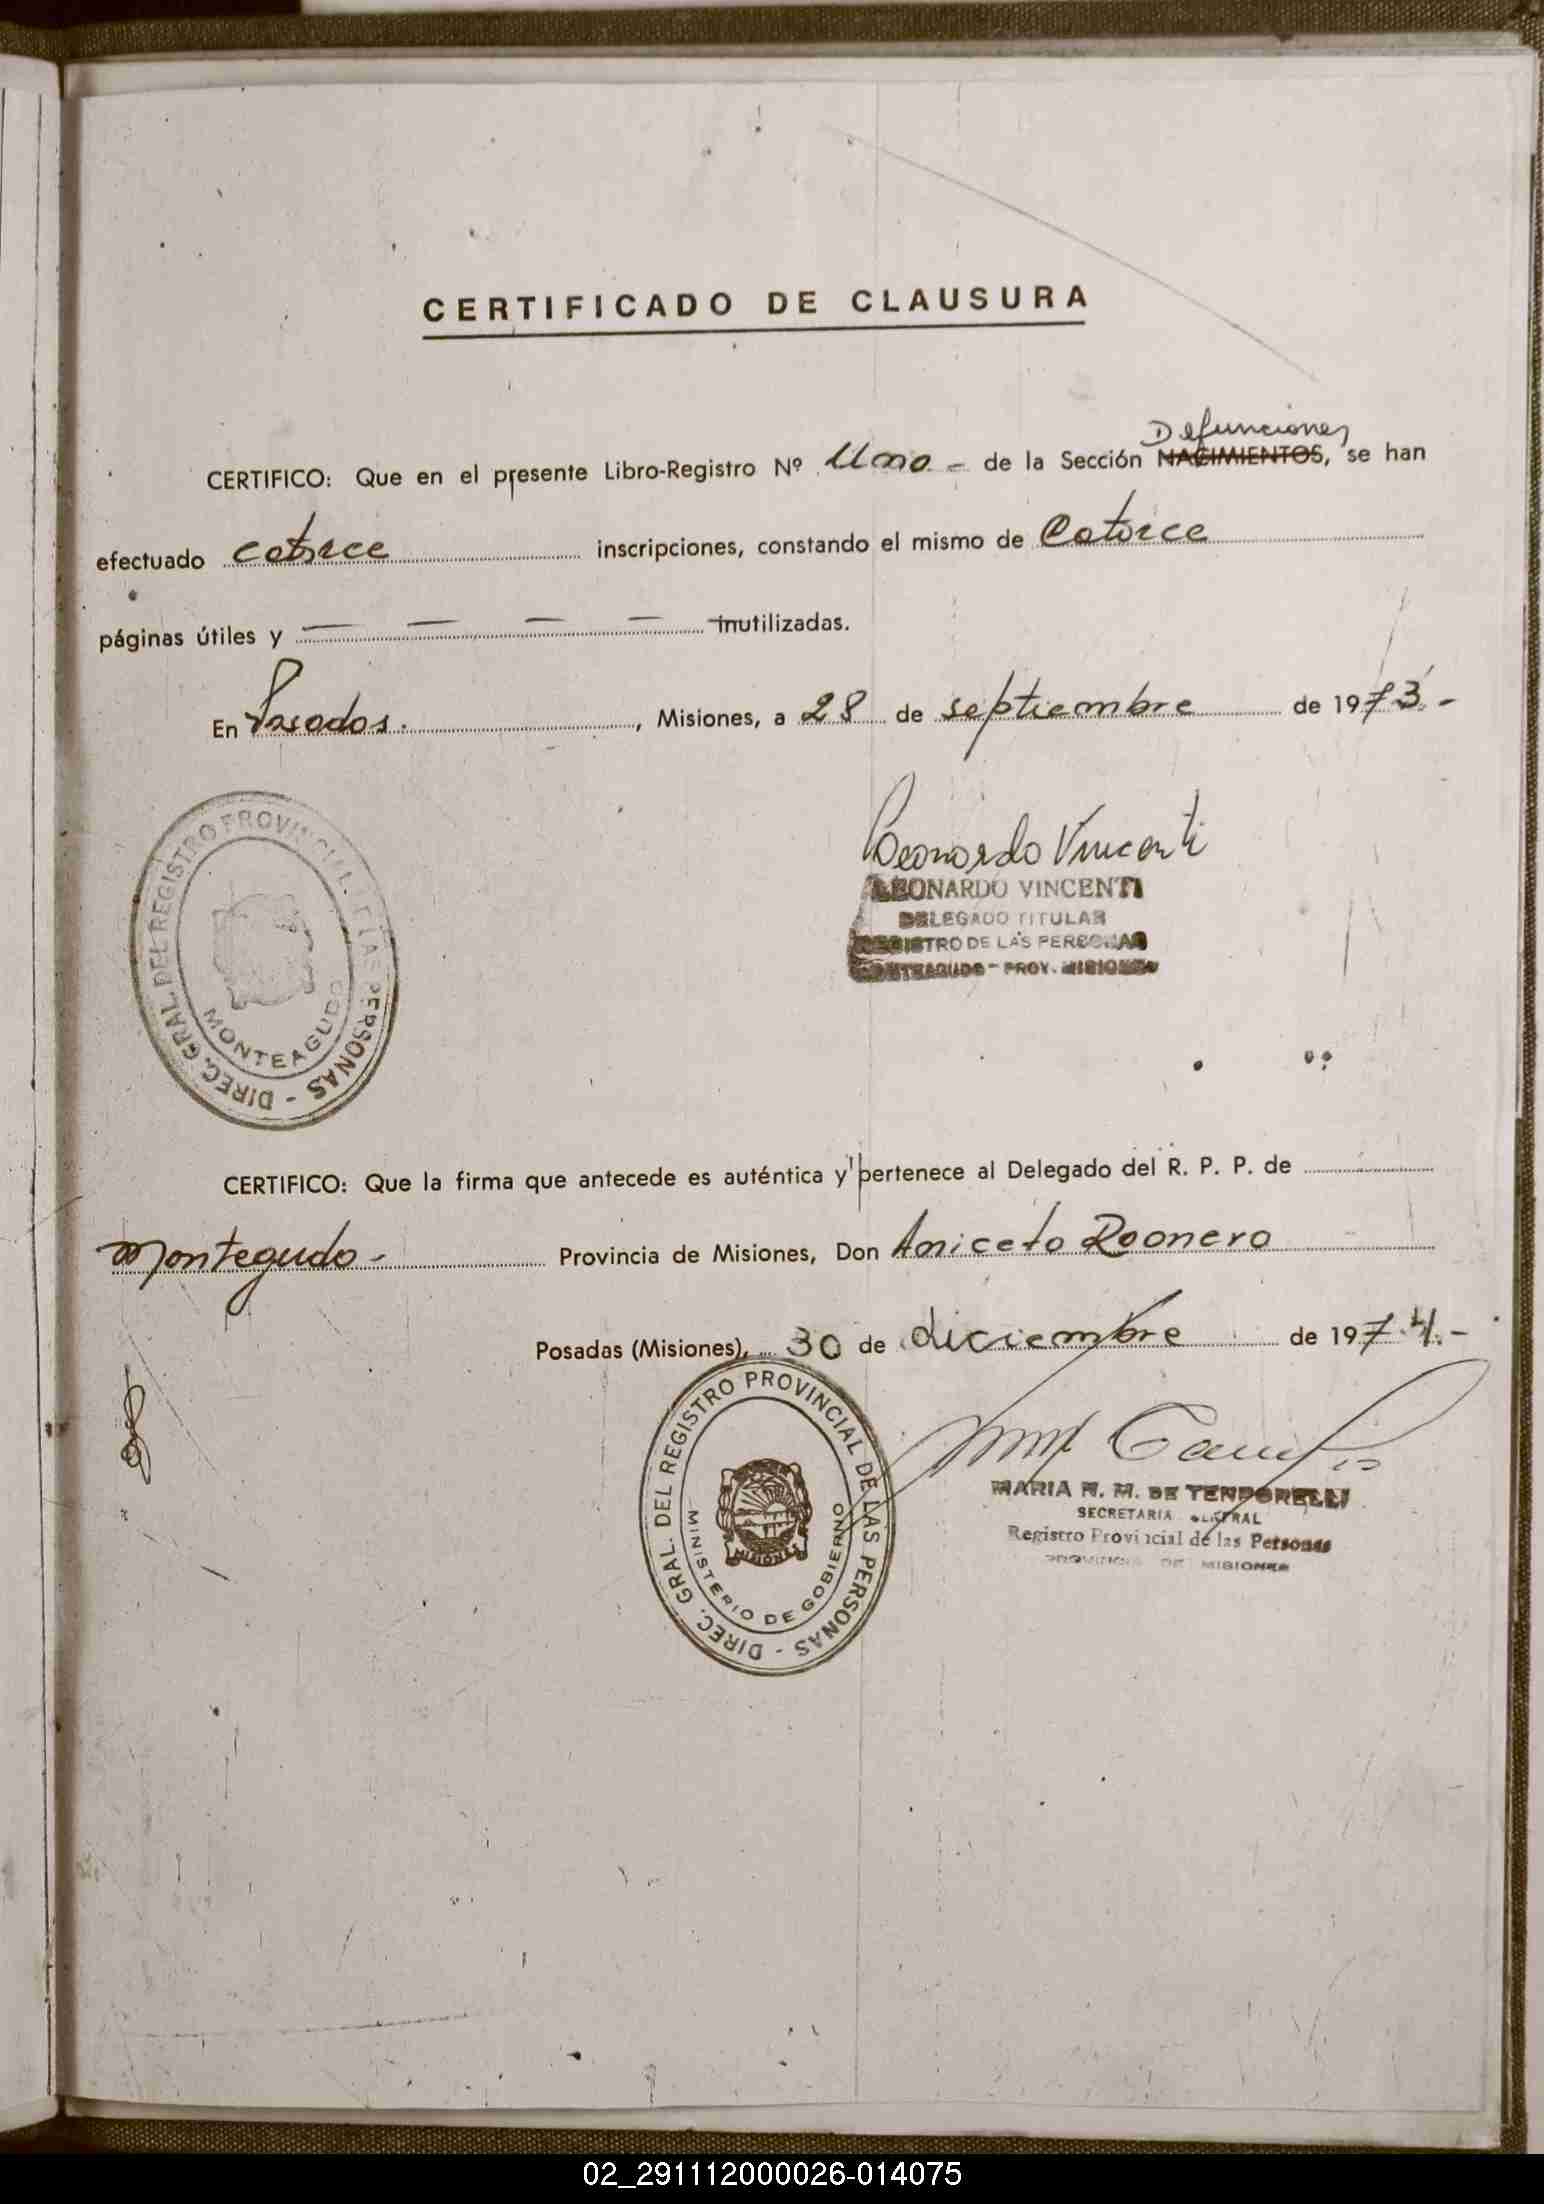 CERTIFICADO DE CLAUSURA
Defunciones
CERTIFICO: Que en el presente Libro-Registro Nº Uno - de la Sección NACIMIENTOS, se han
efectuado catorce inscripciones, constando el mismo de Catorce
páginas útiles y — — — — inutilizadas.
En Posadas. , Misiones, a 28 de septiembre de 1973.-
Leonardo Vincenti
LEONARDO VINCENTI
DELEGADO TITULAR
REGISTRO DE LAS PERSONAS
MONTEAGUDO - PROV. MISIONES
DIREC. GRAL. DEL REGISTRO PROVINCIAL DE LAS PERSONAS -
MONTEAGUDO
CERTIFICO: Que la firma que antecede es auténtica y pertenece al Delegado del R. P. P. de
Montegudo - Provincia de Misiones, Don Aniceto Roonero
Posadas (Misiones), 30 de diciembre de 1974.-
DIREC. GRAL. DEL REGISTRO PROVINCIAL DE LAS PERSONAS -
MINISTERIO DE GOBIERNO
MISIONES
MARIA N. M. DE TENDORELLI
SECRETARIA GENERAL
Registro Provincial de las Personas
PROVINCIA DE MISIONES
02_291112000026-014075